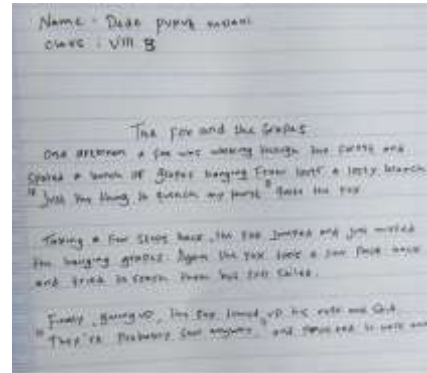 Name : Dede
Class : VIII B
The Fox and the Grapes
One afternoon a fox was walking through the forest and
spoted a bunch of grapes hanging from over a lofty branch
"Just the thing to quench my thirst" quote the fox
Taking a few steps back, the fox jumped and just missed
the hanging grapes. Again the fox took a few pace back
and tried to reach them but still failed.
Finally, giving up, the fox turned up his nose and said
"They're probably sour anyway," and